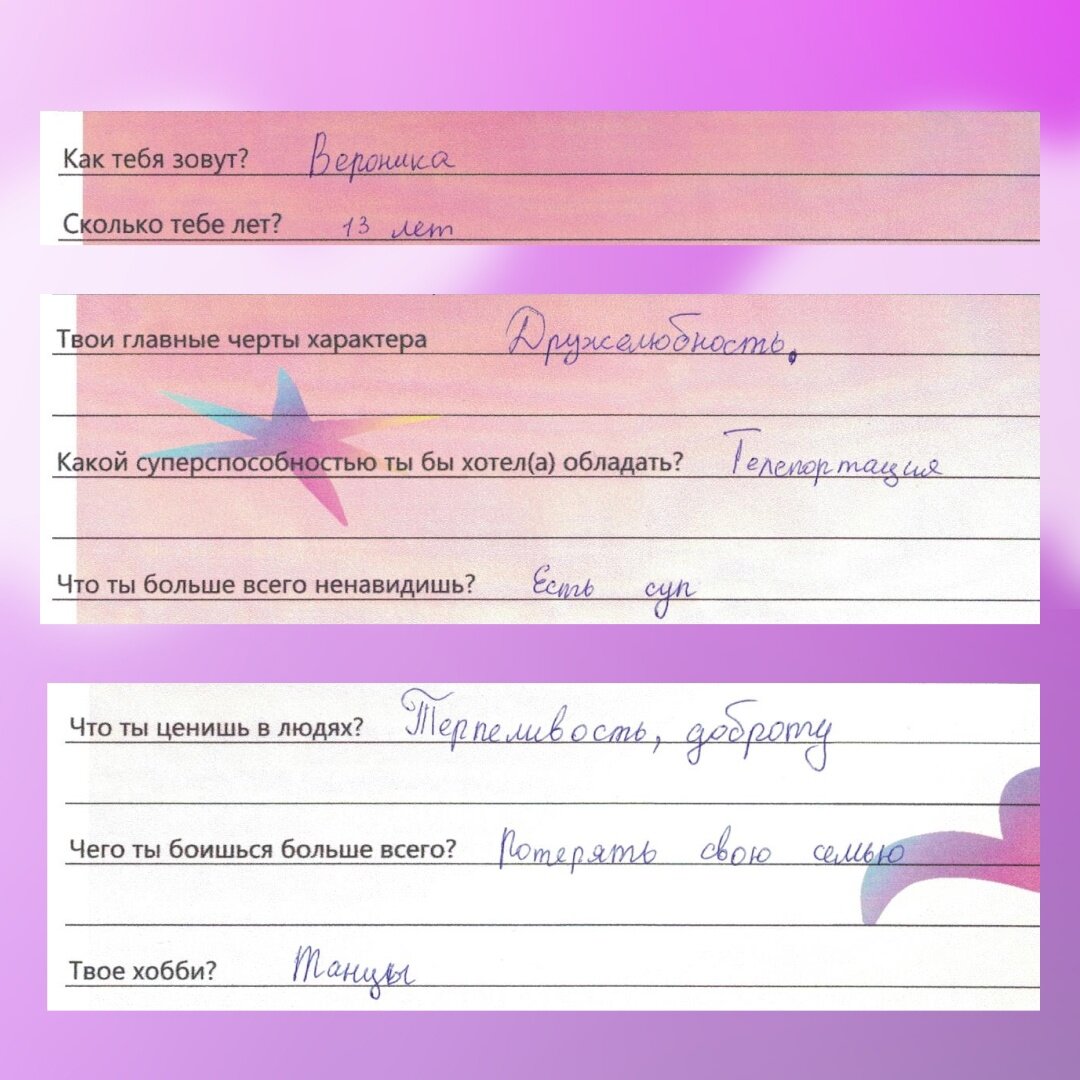 Как тебя зовут? Вероника
Сколько тебе лет? 13 лет
Твои главные черты характера Дружелюбность,
Какой суперспособностью ты бы хотел(а) обладать? Телепортация
Что ты больше всего ненавидишь? Есть суп
Что ты ценишь в людях? Терпеливость, доброту
Чего ты боишься больше всего? Потерять свою семью
Твое хобби? Танцы